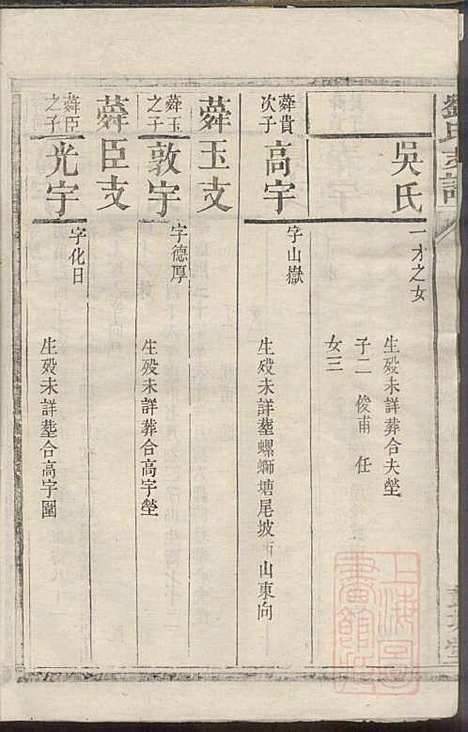 劉氏支譜
吳氏
一才之女
生殁未詳葬合夫塋
子二 俊甫 任
女三
蕣貴次子
高宇
字山嶽
生殁未詳塟螺螄塘尾坡 山東向
蕣玉支
蕣玉之子
敦宇
字德厚
生殁未詳葬合高宇塋
蕣臣支
蕣臣之子
光宇
字化日
生殁未詳塟合高宇圍
上海圖書館藏